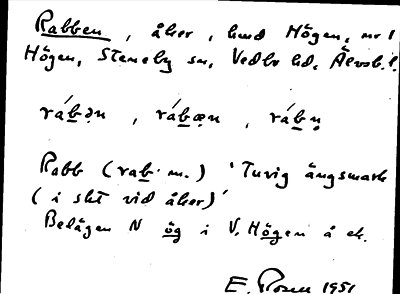 Rabben, åker, hmd Högen, nr 1
Högen, Steneby sn, Vedbo hd, Älvsb. l.
rábən, rábæn, rábn̥
Rabb (rab· m.) 'Tuvig ängsmark
(i sht vid åker)'
Belägen N ög i V. Högen å ek.
E. Rosen 1951